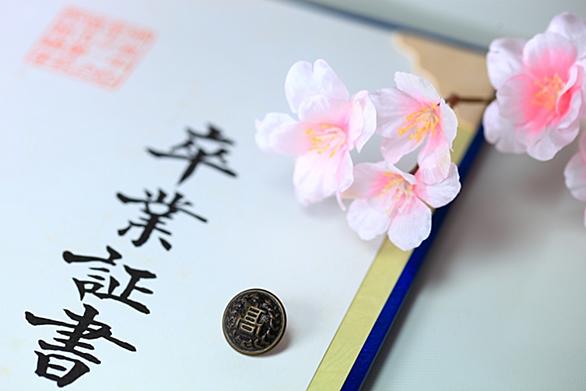 卒業証書
高